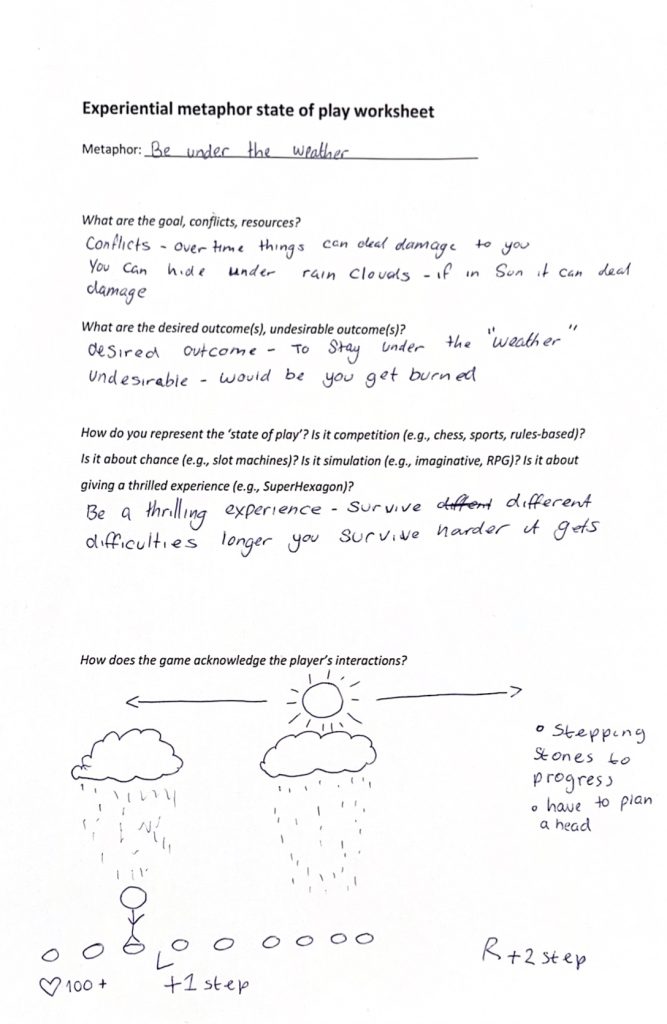 Experiential metaphor state of play worksheet
Metaphor: Be under the weather
What are the goal, conflicts, resources?
Conflicts - over time things can deal damage to you
You can hide under rain clouds - if in Sun it can deal
damage
What are the desired outcome(s), undesirable outcome(s)?
desired outcome - To Stay under the "weather"
Undesirable - would be you get burned
How do you represent the 'state of play'? Is it competition (e.g., chess, sports, rules-based)?
Is it about chance (e.g., slot machines)? Is it simulation (e.g., imaginative, RPG)? Is it about
giving a thrilled experience (e.g., SuperHexagon)?
Be a thrilling experience - survive different
difficulties longer you survive harder it gets
How does the game acknowledge the player's interactions?
Stepping
stones to
progress
have to plan
a head
100 +
L +1 step
R +2 step